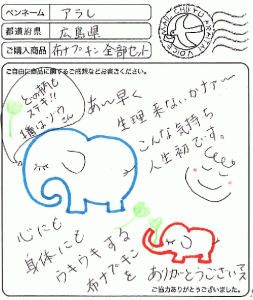 ペンネーム アラし
都道府県 広島県
ご購入商品 布ナプキン全部セット
ご自由に商品に関するご感想などお書きください。
どの柄も
ステキ!!
私はゾウさん
あ〜早く
生理来ないかナァ〜
こんな気持ち
人生初です。
心にも
身体にも
ウキウキする
布ナプキンを
ありがとうございマス
ご協力ありがとうございました。